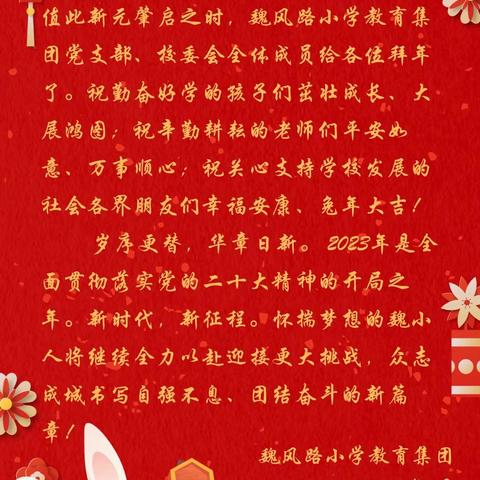 值此新元肇启之时，魏风路小学教育集
团党支部、校委会全体成员给各位拜年
了。祝勤奋好学的孩子们茁壮成长、大
展鸿图；祝辛勤耕耘的老师们平安如
意、万事顺心；祝关心支持学校发展的
社会各界朋友们幸福安康、兔年大吉！
岁序更替，华章日新。2023年是全
面贯彻落实党的二十大精神的开局之
年。新时代，新征程。怀揣梦想的魏小
人将继续全力以赴迎接更大挑战，众志
成城书写自强不息、团结奋斗的新篇
章！
魏风路小学教育集团